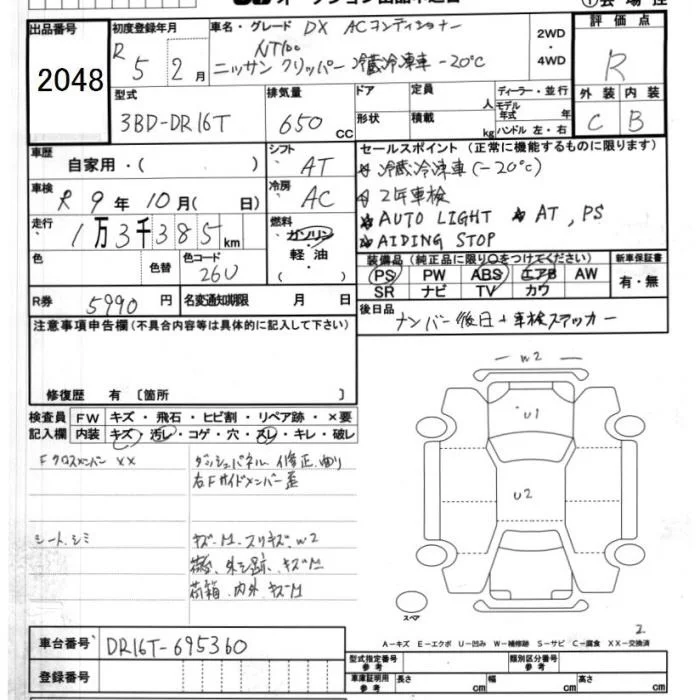 出品番号
2048
初度登録年月
R 5 2 月
車名・グレード DX ACコンディショナー
NT100
ニッサン クリッパー 冷蔵冷凍車 -20℃
2WD
・
4WD
評価点
R
型式
3BD-DR16T
排気量
650 CC
ドア
形状
定員
人
積載
kg
ディーラー・並行
モデル年式
年
ハンドル 左・右
外装
内装
C
B
車歴
自家用・( )
シフト
AT
車検
R 9 年 10 月( 日)
冷房
AC
走行
1万3千385km
燃料
ガソリン
・
軽油
色
色替
色コード
26U
R券
5990 円
名変通知期限 月 日
セールスポイント(正常に機能するものに限ります)
冷蔵冷凍車(-20℃)
2年車検
AUTO LIGHT ★ AT, PS
★ AIDING STOP
装備品(純正品に限り○をつけてください)
PS PW ABS エアB AW
SR ナビ TV カワ
新車保証書
有・無
後日品
ナンバー後日+車検ステッカー
注意事項申告欄(不具合内容等は具体的に記入して下さい)
修復歴 有 [箇所 ]
検査員
記入欄
FW キズ・飛石・ヒビ割・リペア跡・×要
内装 キズ・汚レ・コゲ・穴・スレ・キレ・破レ
Fクロスメンバー XX
ダッシュパネル 修正有り
右Fサイドメンバー歪
シート、シミ
キズ、M、スリキズ、W2
荷台、外シ跡、キズM
荷箱、内外 キズM
W2
U1
U2
スペア
2
A-キズ E-エクボ U-凹み W-補修跡 S-サビ C-腐食 XX-交換済
車台番号
DR16T-695360
登録番号
型式指定番号
参考
類別区分番号
参考
車庫証明用
参考
長さ
cm
幅
cm
高さ
cm